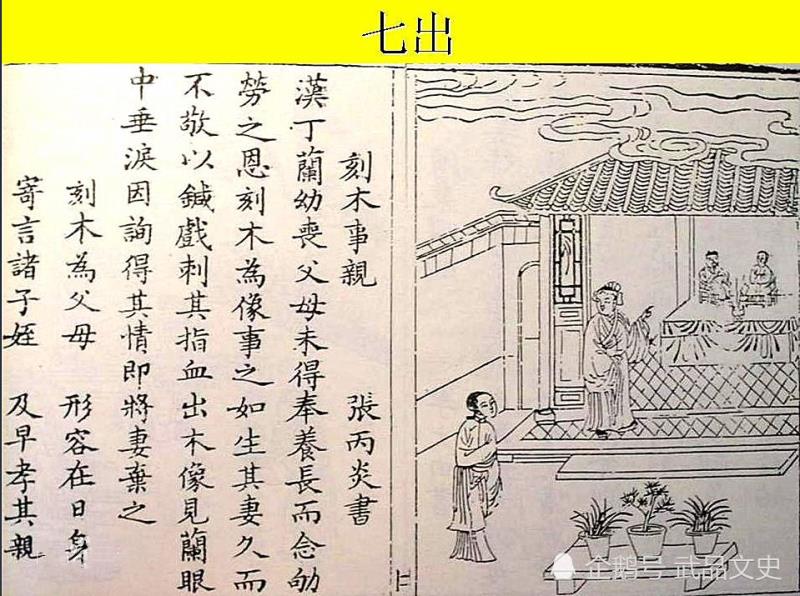 七出
刻木事親 張丙炎書
漢丁蘭幼喪父母未得奉養長而念劬
勞之恩刻木為像事之如生其妻久而
不敬以鍼戲刺其指血出木像見蘭眼
中垂淚因詢得其情即將妻棄之
刻木為父母 形容在日身
寄言諸子姪 及早孝其親
企鹅号 武品文史